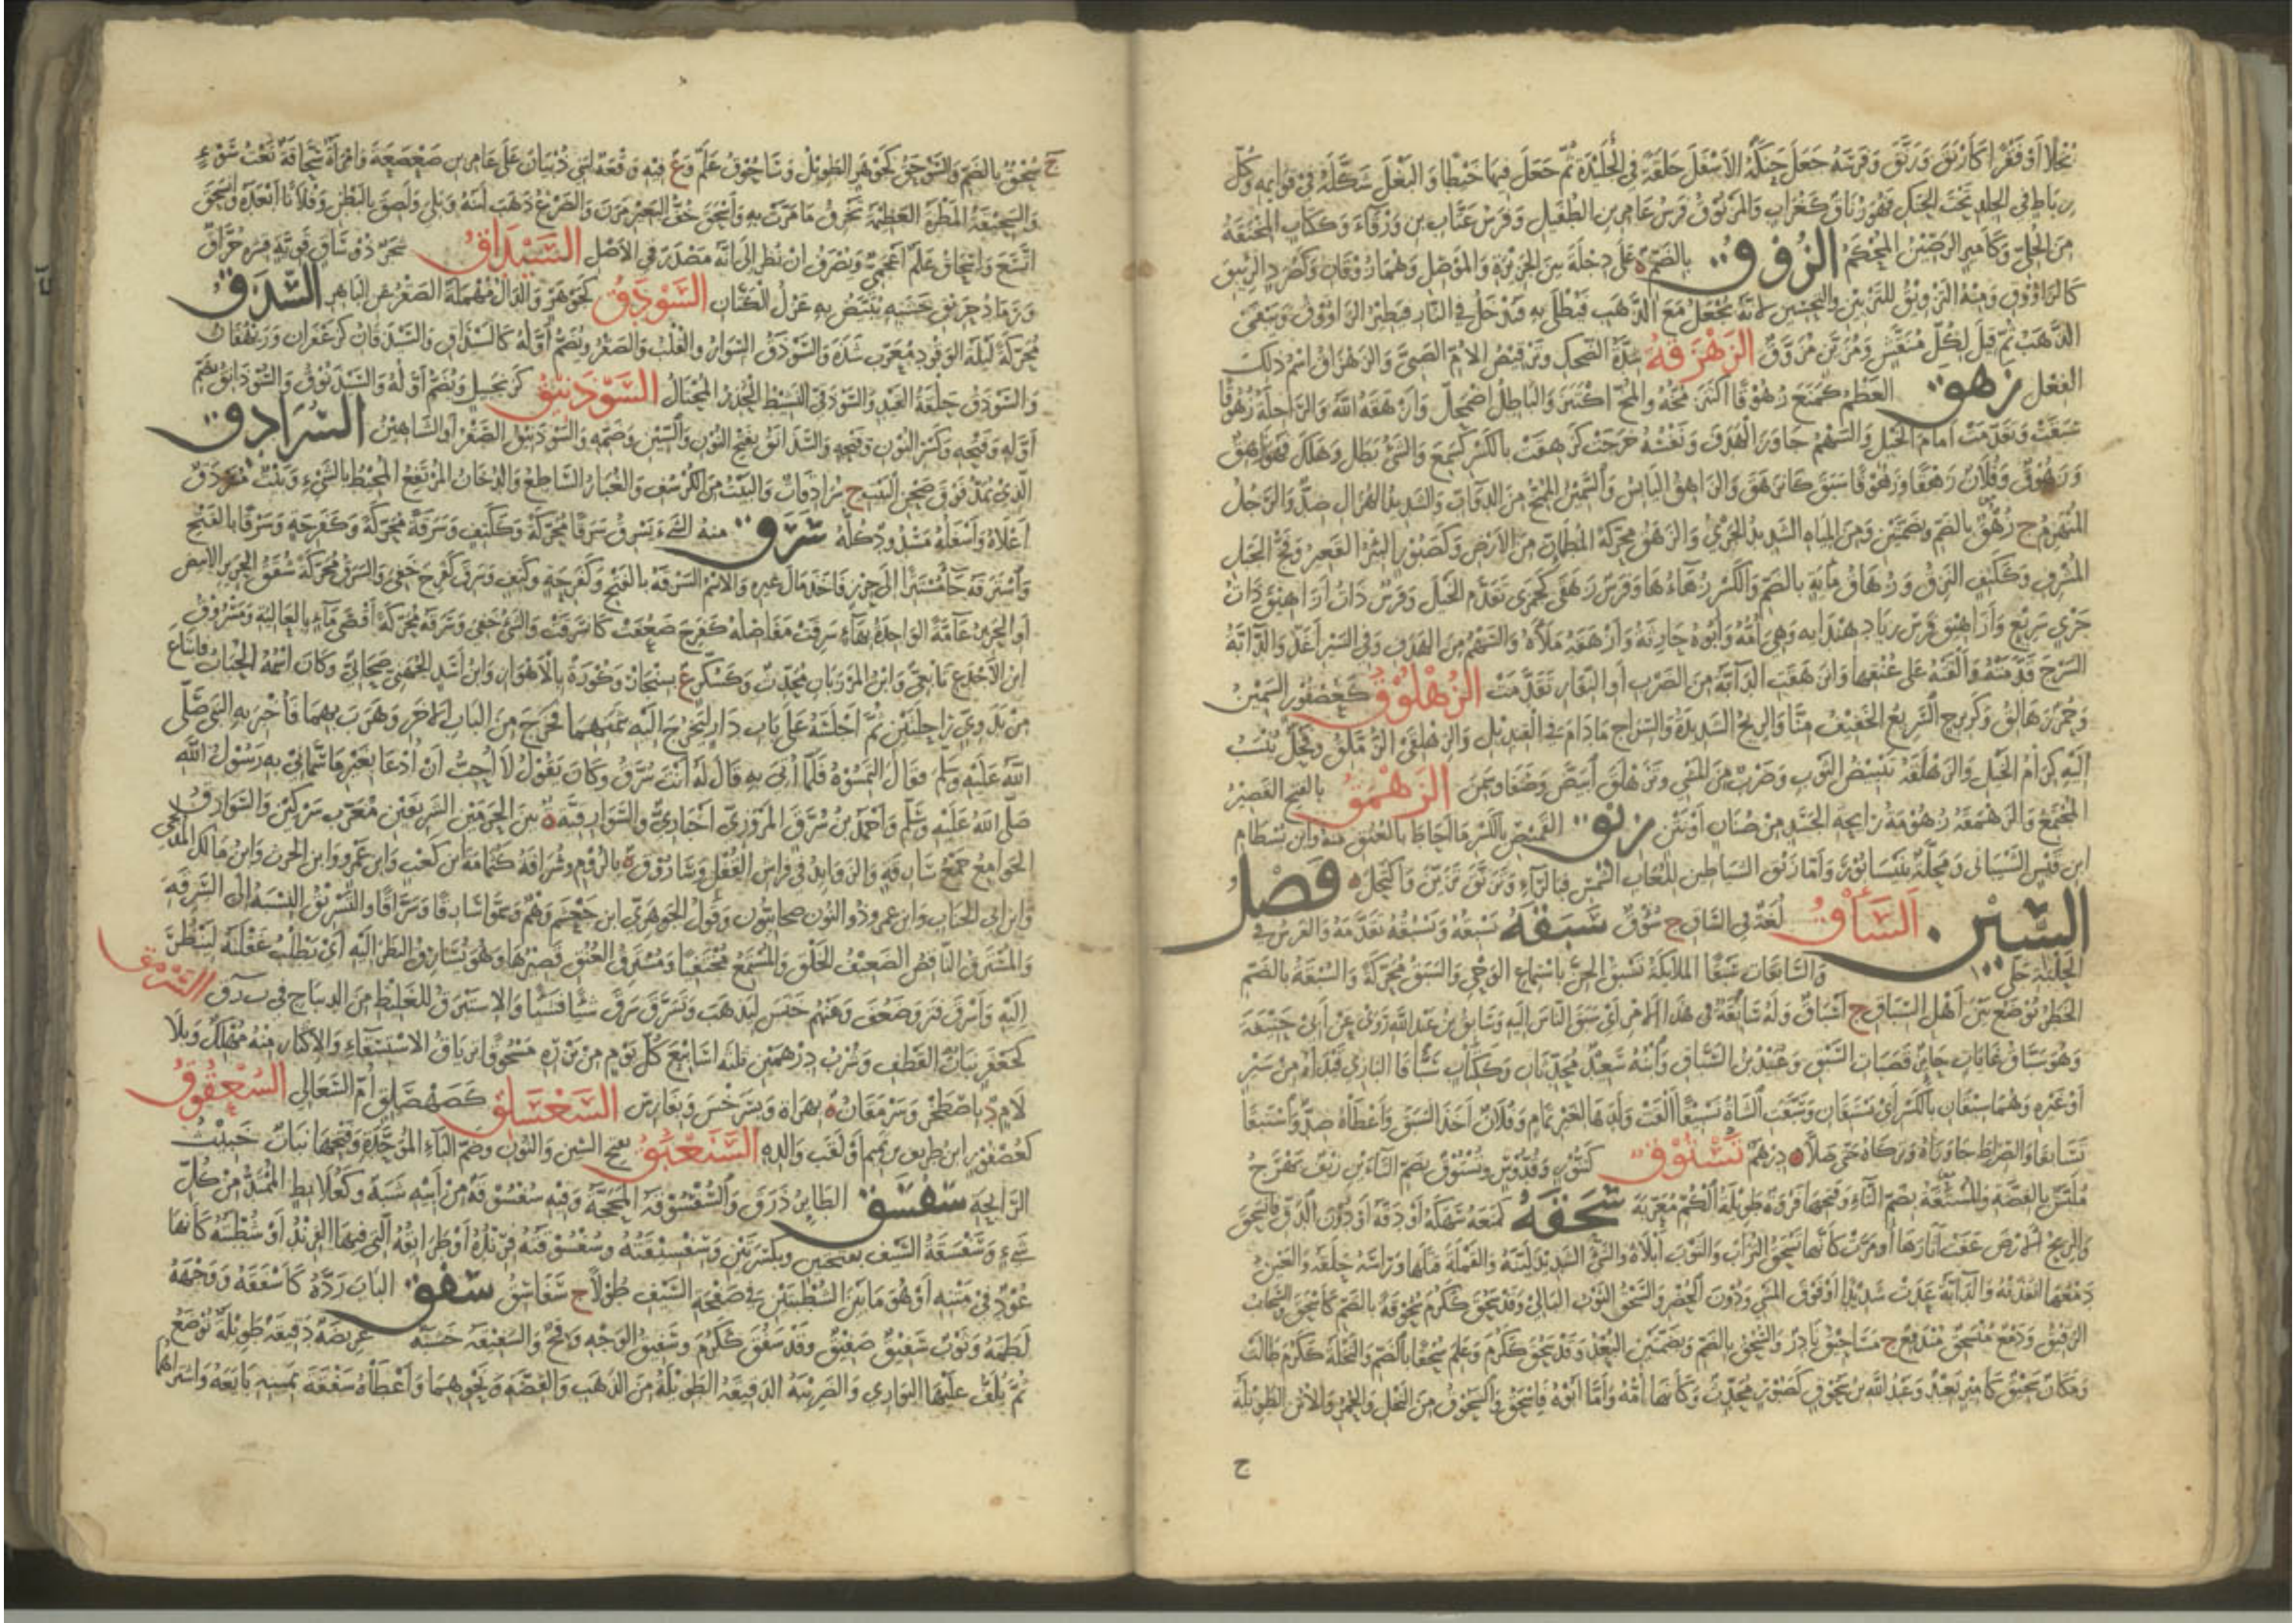 نخلا أو فقرا كأزنق وزنق وفرسه جعل تحت حنكه الأسفل حلقة في الجليدة ثم جعل فيها خيطا والبغل شكله في قوائمه وكل
رباط في الجلد تحت الحنك فهو زناق كغراب والمزنوق فرس عامر بن الطفيل وفرس عتاب بن ورقاء وككتاب المخنقة
من الحلي وكأمير الرصين المحكم الزوق بالضم ة على دجلة بين الجزيرة والموصل وهما زوقان وكصرد الزئبق
كالزاووق ومنه التزويق للتزيين والتحسين لأنه يجعل مع الذهب فيطلى به فيدخل في النار فيطير الزاووق ويبقى
الذهب ثم قيل لكل منقش ومزين مزوق الزهزقة شدة الضحك وترقيص الأم الصبي والزهزاق اسم ذلك
الفعل زهق العظم كمنع زهوقا اكتنز مخه والمخ اكتنز والباطل اضمحل وأزهقه الله والراحلة زهوقا
سبقت وتقدمت أمام الخيل والسهم جاوز الهدف ونفسه خرجت كزهقت بالكسر كسمع والشيء بطل وهلك فهو زاهق
وزهوق وفلان زهقا وزهوقا سبق كانزهق والزاهق اليابس والسمين الممخ من الدواب والشديد الهزال ضد والرجل
المنهزم ج زهق بالضم وبضمتين ومن المياه الشديد الجري والزهق محركة المطمئن من الأرض وكصبور البئر القعير وفج الجبل
المشرف وككتف النزق وزهاق مائة بالضم والكسر زهاءها وفرس زهقى كجمزى تقدم الخيل وفرس ذات أزاهيق ذات
جري سريع وأزاهيق فرس زياد بن هندابه وهي أمه وأبوه حارثة وأزهقه ملأه والسهم من الهدف وفي السير أغذ والدابة
السرج قدمته وألقته على عنقها وانزهقت الدابة من الضرب أو النفار تقدمت الزهلوق كعصفور السمين
وحمر زهالق وكزبرج السريع الخفيف منا والريح الشديدة والسراج ما دام في القنديل والزهلقي الزملق وفحل ينسب
إليه كرام الخيل والزهلقة تبييض الثوب وضرب من المشي وتزهلق ابيض وصفا وسمن الزهمق بالفتح القصير
المجتمع والزهمقة زهومة رائحة الجسد من صنان أو نتن زيق القميص بالكسر ما أحاط بالعنق منه وابن بسطام
ابن قيس الشيباني ومحلة بنيسابور وأما زيق الشياطين للعاب الشمس فبالراء وتزيق تزين وأكتحل فصل
السين السأق لغة في الساق ج سؤق سبقه يسبقه ويسبقه تقدمه والفرس في
الحلبة جلى والسابقات سبقا الملائكة تسبق الجن باستماع الوحي والسبق محركة والسبقة بالضم
الخطر يوضع بين أهل السباق ج أسباق وله سابقة في هذا الأمر أي سبق الناس إليه وسابق بن عبد الله روى عن أبي حنيفة
وهو سباق غايات حائز قصبات السبق وعبيد بن السباق وابنه سعيد محدثان وككتاب سباقا البازي قيداه من سير
أو غيره وهما سبقان بالكسر أي يستبقان وسبقت الشاة تسبيقا ألقت ولدها لغير تمام وفلان أخذ السبق وأعطاه ضد واستبقا
تسابقا والصراط جاوزاه وتركاه حتى ضلا درهم ستوق كتنور وقدوس وتستوق بضم التاءين زيف بهرج
ملبس بالفضة والمستقة بضم التاء وفتحها فروة طويلة الكم معربة سحقه كمنعه سهكه أو دقه أو دون الدق فانسحق
والريح الأرض عفت آثارها أو مرت كأنها تسحق التراب والثوب أبلاه والشيء الشديد لينه والقملة قتلها ورأسه حلقه والعين
دمعها أنفذته والدابة عدت شديدا أو فوق المشي ودون الحضر والسحق الثوب البالي وقد سحق ككرم سحوقة بالضم كأسحق والسحاب
الرقيق ودمع منسحق مندفع ج مساحيق نادر والسحق بالضم وبضمتين البعد وقد سحق ككرم وعلم سحقا بالضم والنخلة ككرم طالت
ومكان سحيق كأمير بعيد وعبد الله بن سحوق كصبور محدث وكأنها أمه وأما أبوه فإسحق والسحوق من النخل والحمر والأتن الطويلة
ج
ج سحق بالضم والسوحق كجوهر الطويل وساحوق علم وع فيه وقعة لبني ذبيان على عامر بن صعصعة وامرأة سحاقة نعت سوء
والسحيقة المطرة العظيمة تجرف ما مرت به وأسحق خف البعير مرن والضرع ذهب لبنه وبلي ولصق بالبطن وفلانا أبعده وانسحق
اتسع وإسحاق علم أعجمي ويصرف إن نظر إلى أنه مصدر في الأصل السيداق شجر ذو ساق قوية قشره حراق
ورماد حريق خشبه يبيض به غزل الكتان السودق كجوهر والدال مهملة الصقر عن الباهر السذق
محركة ليلة الوقود معرب سده والسوذق السوار والقلب والصقر ويضم أوله كالسذاق والسذقان كزعفران وريهقان
والسوذق حلقة القيد والسوذقي النشيط الحذر المحتال السوذنيق كزنجبيل ويضم أوله والسيذنوق والسوذانق بضم
أوله وفتحه وكسر النون وفتحه والسذانق بفتح النون والسين وضمه والسوذينق الصقر أو الشاهين السرادق
الذي يمد فوق صحن البيت ج سرادقات والبيت من الكرسف والغبار الساطع والدخان المرتفع المحيط بالشيء وبيت مسردق
أعلاه وأسفله مشدود كله سرق منه الشيء يسرق سرقا محركة وككتف وسرقة محركة وكفرحة وسرقا بالفتح
واسترقه جاء مستترا إلى حرز فأخذ مال غيره والاسم السرقة بالفتح وكفرحة وكتف وسرق كفرح خفي والسرق محركة شقق الحرير الأبيض
أو الحرير عامة الواحدة بهاء وسرقت مفاصله كفرح ضعفت كانسرقت والشيء خفي وسرقة محركة أقصى ماء بالعالية ومسروق
ابن الأجدع تابعي وابن المرزبان محدث وكسكر ع بسنجار وكورة بالأهواز وابن أسد الجهني صحابي وكان اسمه الحباب فابتاع
من بدوي راحلتين ثم أجلسه على باب دار ليخرج إليه بثمنهما فخرج من الباب الآخر وهرب بهما فأخبر به النبي صلى
الله عليه وسلم فقال التمسوه فلما أتي به قال له أنت سرق وكان يقول لا أحب أن أدعى بغير ما سماني به رسول الله
صلى الله عليه وسلم وأحمد بن سرق المروزي أخباري والسوارقية ة بين الحرمين الشريفين معرب سركين والسوارق
الجوامع جمع سارقة والزوائد في فراش القفل وساروق ة بالروم وسراقة كثمامة ابن كعب وابن عمرو وابن الحرث وابن مالك المدلجي
وابن أبي الحباب وابن عمرو ذو النون صحابيون وقول الجوهري ابن جعشم وهم وسموا سارقا وسراقا والتسريق النسبة إلى السرقة
والمسترق الناقص الضعيف الخلق والمستمع مختفيا ومسترق العنق قصيرها وهو يسارق النظر إليه أي يطلب غفلته لينظر
إليه وانسرق فتر وضعف وعنهم خنس ليذهب وتسرق سرق شيئا فشيئا والإستبرق للغليظ من الديباج في ب ر ق السرمق
كجعفر نبات القطف وشرب درهمين ثلثة أسابيع كل يوم من بزره مسحوقا ترياق الاستسقاء والإكثار منه مهلك وبلا
لام د بإصطخر وسرمقان ة بهراة وبسرخس وبفارس السعسلق كصهصلق أم السعالي السعقوق
كعصفور ابن طريف بن تميم أو لقب والده السنعبق بفتح السين والنون وضم الباء الموحدة وفتحها نبات خبيث
الرائحة سفسق الطائر ذرق والسفسوقة المحجة وفيه سفسوقة من أبيه شبه وكعلابط الممتد من كل
شيء وسفسقة السيف بفتحتين وبكسرتين وسفسيقته وسفسوقته فرنده أو طرائقه التي فيها الفرند أو شطبته كأنها
عمود في متنه أو هو ما بين الشطبتين في صفحة السيف طولا ج سفاسق سفق الباب رده كأسفقه ووجهه
لطمه وثوب سفيق صفيق وقد سفق ككرم وسفيق الوجه وقح والسفيقة خشبة عريضة دقيقة طويلة توضع
ثم يلف عليها البواري والضريبة الدقيقة الطويلة من الذهب والفضة ونحوهما وأعطاه سفقة يمينه بايعه واشتراها